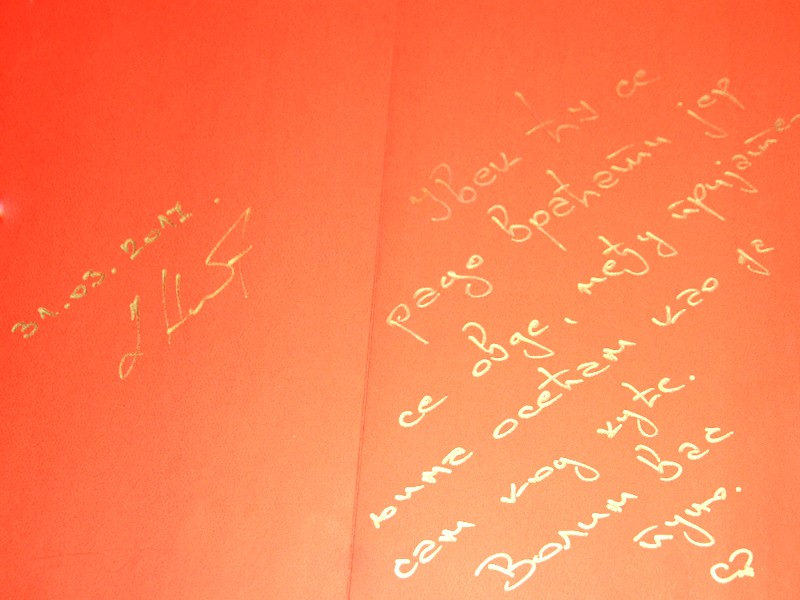 31.03.2017.
Увек ћу се
радо враћати јер
се овде, међу пријате-
љима осећам као да
сам код куће.
Волим Вас
пуно.